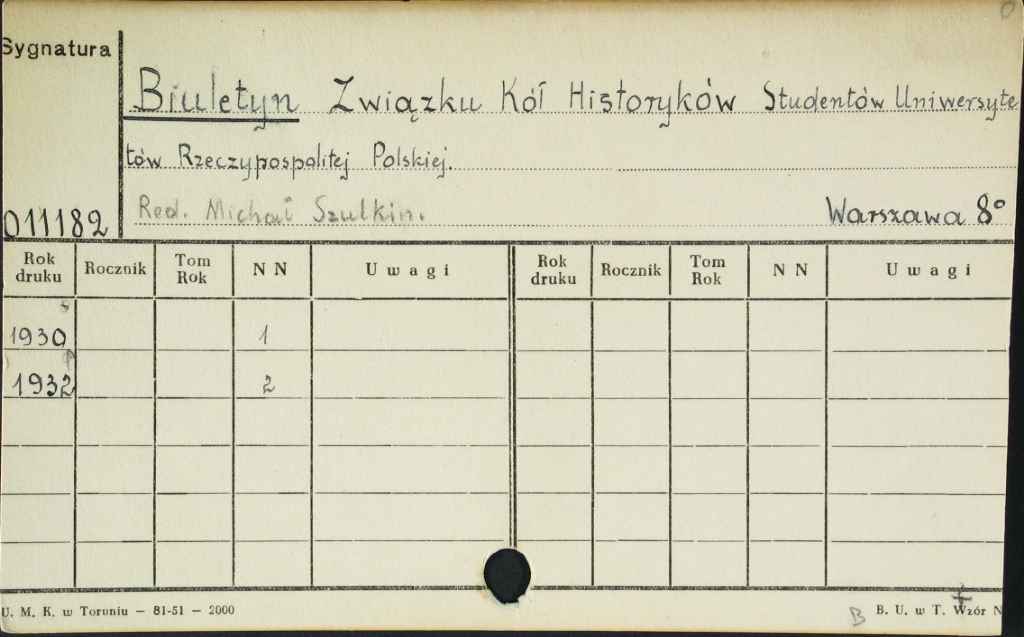 Sygnatura
Biuletyn Związku Kół Historyków Studentów Uniwersyte
tów Rzeczypospolitej Polskiej.
Red. Michał Szulkin.
Warszawa 8°
011182
Rok druku Rocznik Tom Rok N N Uwagi Rok druku Rocznik Tom Rok N N Uwagi
1930 1
1932 2
U. M. K. w Toruniu — 81-51 — 2000
B B. U. w T. Wzór N